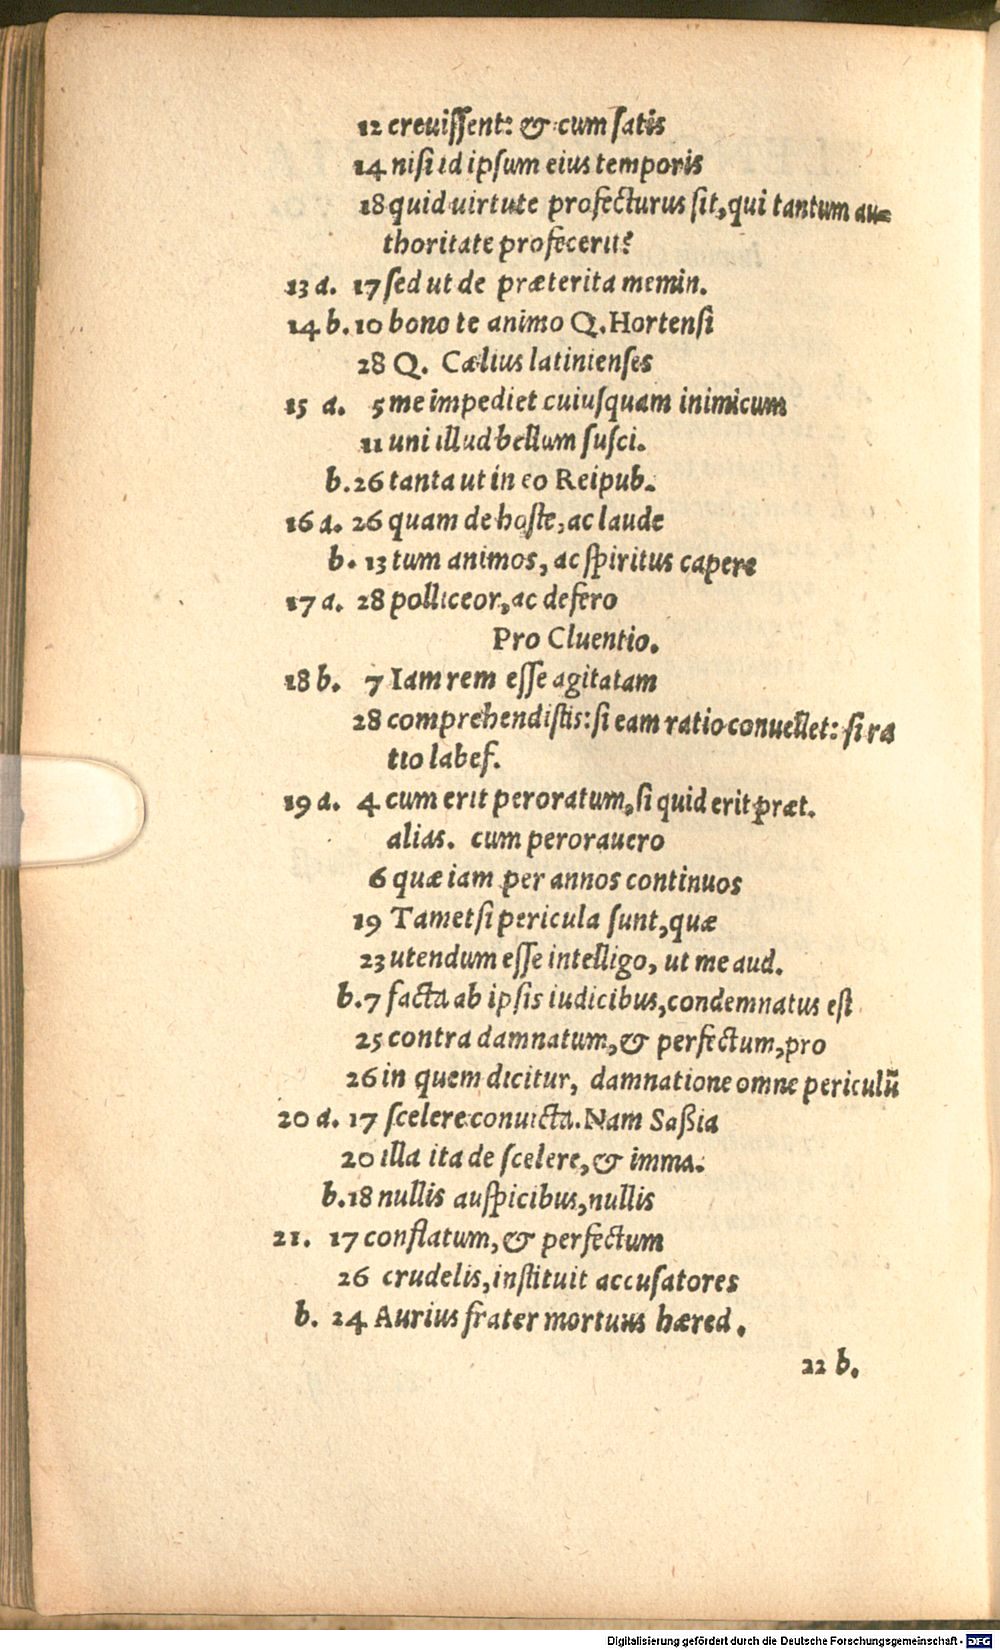 12 creuiſſent: & cum ſatis
14 niſi id ipſum eius temporis
18 quid uirtute profecturus ſit, qui tantum au-
thoritate profecerit?
13 a. 17 ſed ut de præterita memin.
14 b. 10 bono te animo Q. Hortenſi
28 Q. Cælius latinienſes
15 a. 5 me impediet cuiuſquam inimicum
11 uni illud bellum ſuſci.
b. 26 tanta ut in eo Reipub.
16 a. 26 quam de hoſte, ac laude
b. 13 tum animos, ac ſpiritus capere
17 a. 28 polliceor, ac defero
Pro Cluentio.
18 b. 7 Iam rem eſſe agitatam
28 comprehendiſtis: ſi eam ratio conuellet: ſi ra
tio labef.
19 a. 4 cum erit peroratum, ſi quid erit præt.
alias. cum perorauero
6 quæ iam per annos continuos
19 Tametſi pericula ſunt, quæ
23 utendum eſſe intelligo, ut me aud.
b. 7 facta ab ipſis iudicibus, condemnatus eſt
25 contra damnatum, & perfectum, pro
26 in quem dicitur, damnatione omne periculũ
20 a. 17 ſcelere conuicta. Nam Saßia
20 illa ita de ſcelere, & imma.
b. 18 nullis auſpicibus, nullis
21. 17 conflatum, & perfectum
26 crudelis, inſtituit accuſatores
b. 24 Aurius frater mortuus hæred.
22 b.
Digitalisierung gefördert durch die Deutsche Forschungsgemeinschaft - DFG